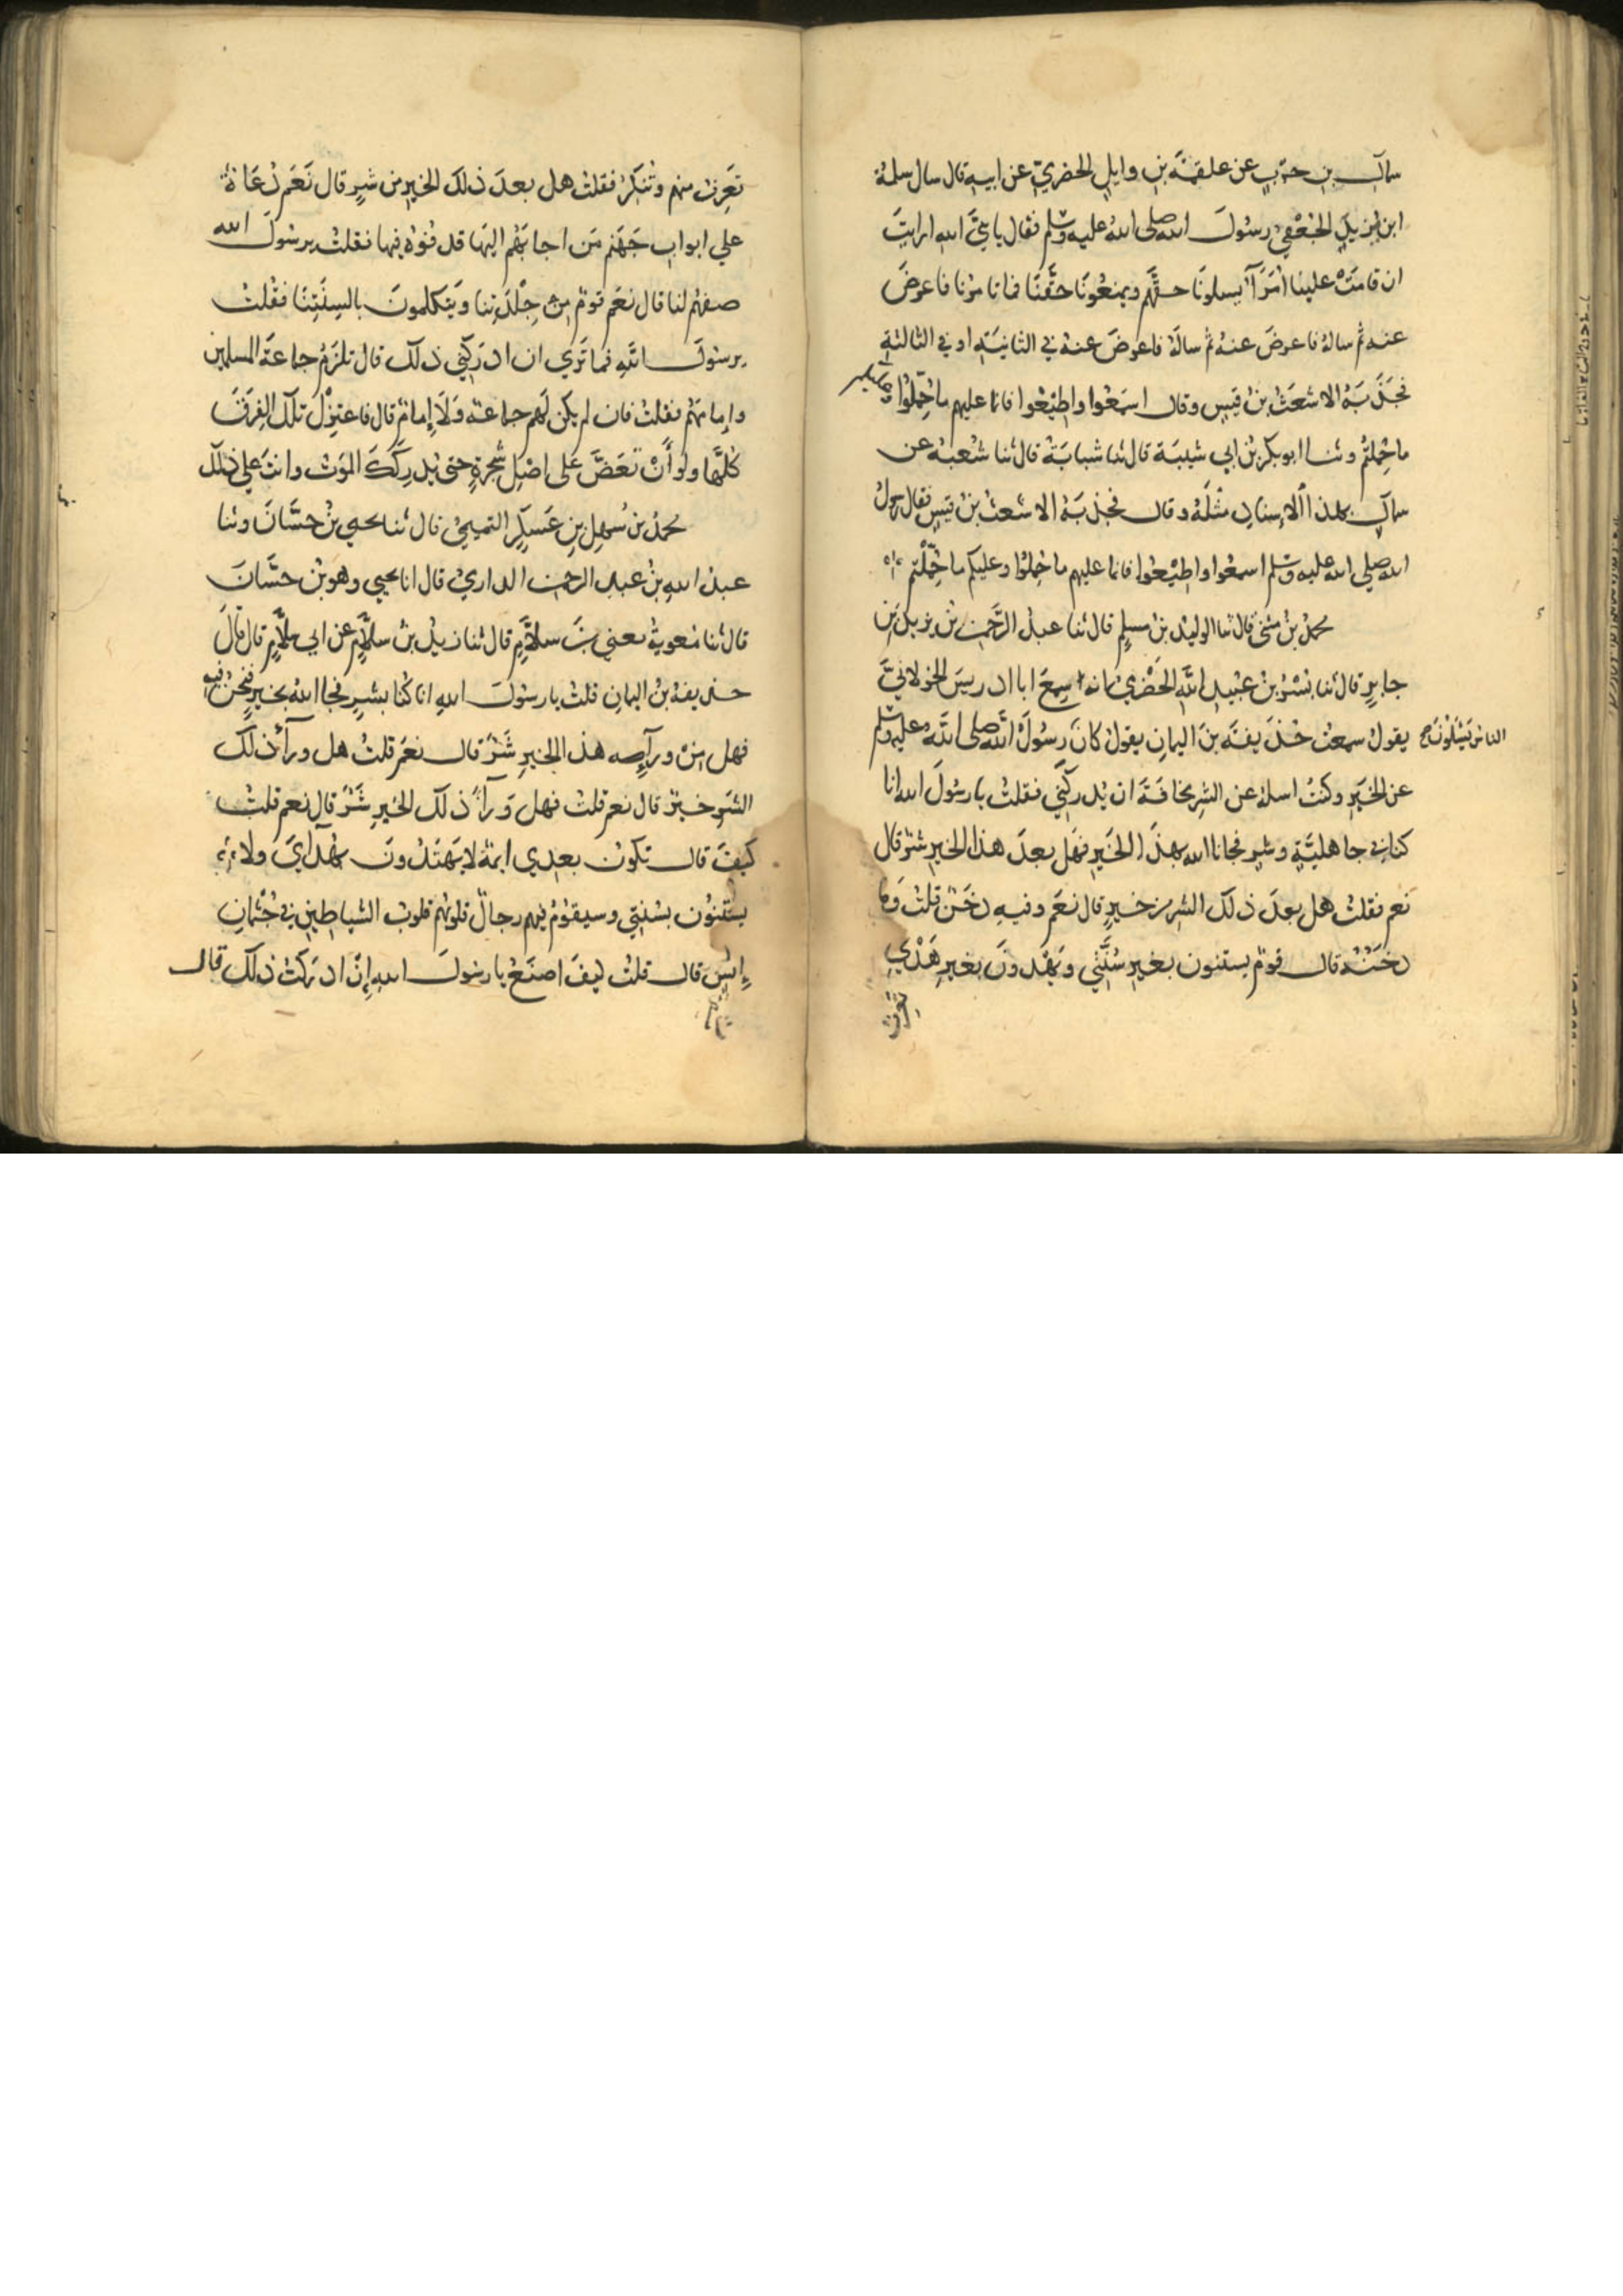 سماك بن حرب عن علقمة بن وايل الحضرمي عن ابيه قال سال سلمة
ابن يزيد الجعفي رسول الله صلى الله عليه وسلم فقال يا نبي الله ارايت
ان قامت علينا امرآ يسلونا حقهم ويمنعونا حقنا فما تامرنا فاعرض
عنه ثم ساله فاعرض عنه ثم ساله فاعرض عنه في الثانية او في الثالثة
فجذبه الاشعث بن قيس وقال اسمعوا واطيعوا فانما عليهم ما حملوا وعليكم
ما حملتم وثنا ابو بكر بن ابي شيبة قال ثنا شبابة قال ثنا شعبة عن
سماك بهذا الاسناد مثله وقال فجذبه الاشعث بن قيس فقال رسول
الله صلي الله عليه وسلم اسمعوا واطيعوا فانما عليهم ما حملوا وعليكم ما حملتم
محمد بن مثنى قال ثنا الوليد بن مسلم قال ثنا عبد الرحمن بن يزيد بن
جابر قال ثنا بسر بن عبيد الله الحضرمي انه سمع ابا ادريس الخولاني
يقول سمعت حذيفة بن اليمان يقول كان رسول الله صلى الله عليه وسلم
الناس يسئلون
عن الخير وكنت اسله عن الشر مخافة ان يدركني فقلت يا رسول الله انا
كنا في جاهلية وشر فجانا الله بهذا الخير فهل بعد هذا الخير شر قال
نعم فقلت هل بعد ذلك الشر من خير قال نعم وفيه دخن قلت وما
دخنه قال قوم يستنون بغير سنتي ويهدون بغير هديي
تعرف
تعرف منهم وتنكر فقلت هل بعد ذلك الخير من شر قال نعم دعاة
علي ابواب جهنم من اجابهم اليها قذفوه فيها فقلت يرسول الله
صفهم لنا قال نعم قوم من جلدتنا ويتكلمون بالسنتنا فقلت
يرسول الله فما تري ان ادركني ذلك قال تلزم جماعة المسلمين
وامامهم فقلت فان لم يكن لهم جماعة ولا امام قال فاعتزل تلك الفرق
كلها ولو أن تعض على اصل شجرة حتى يدركك الموت وانت علي ذلك
محمد بن سهل بن عسكر التميمي قال ثنا يحيي بن حسان وثنا
عبد الله بن عبد الرحمن الداري قال انا يحيي وهو بن حسان
قال ثنا معوية يعني بن سلام قال ثنا زيد بن سلام عن ابي سلام قال قال
حذيفة بن اليمان قلت يا رسول الله انا كنا بشر فجا الله بخير فنحن فيه
فهل من ورآء هذا الخير شر قال نعم قلت هل ورآ ذلك
الشر خير قال نعم قلت فهل ورآ ذلك الخير شر قال نعم قلت
كيف قال تكون بعدي ايمة لا يهتدون بهداي ولا
يستنون بسنتي وسيقوم فيهم رجال قلوبهم قلوب الشياطين في جثمان
إنس قال قلت كيف اصنع يا رسول الله إن ادركت ذلك قال